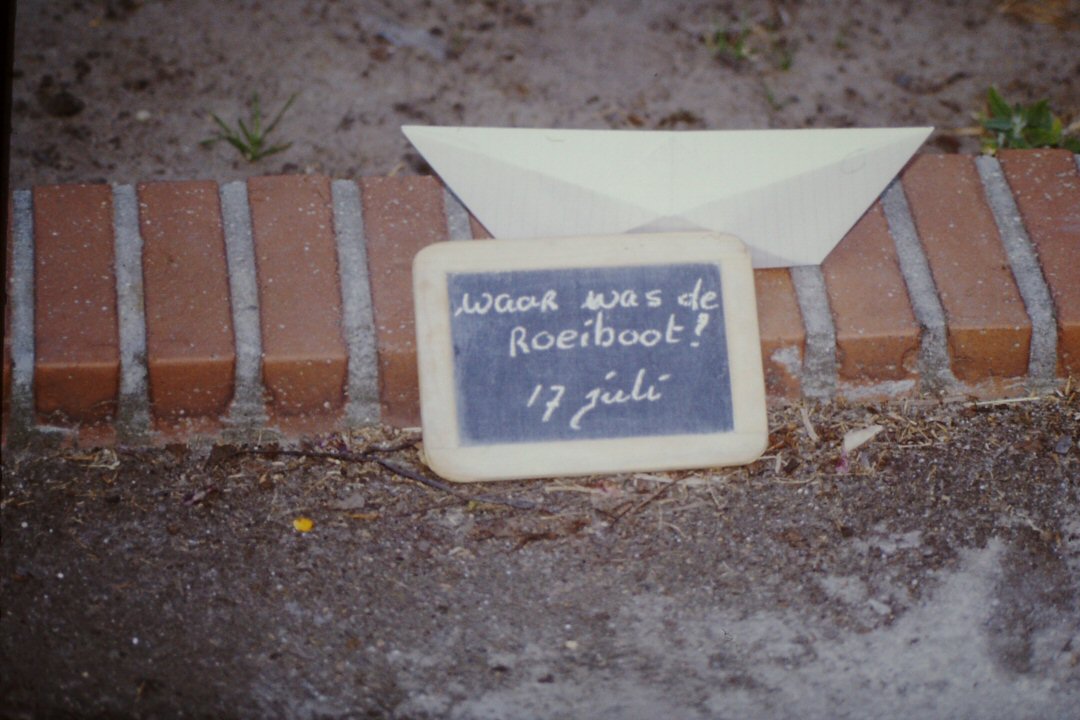 waar was de
Roeiboot?
17 juli